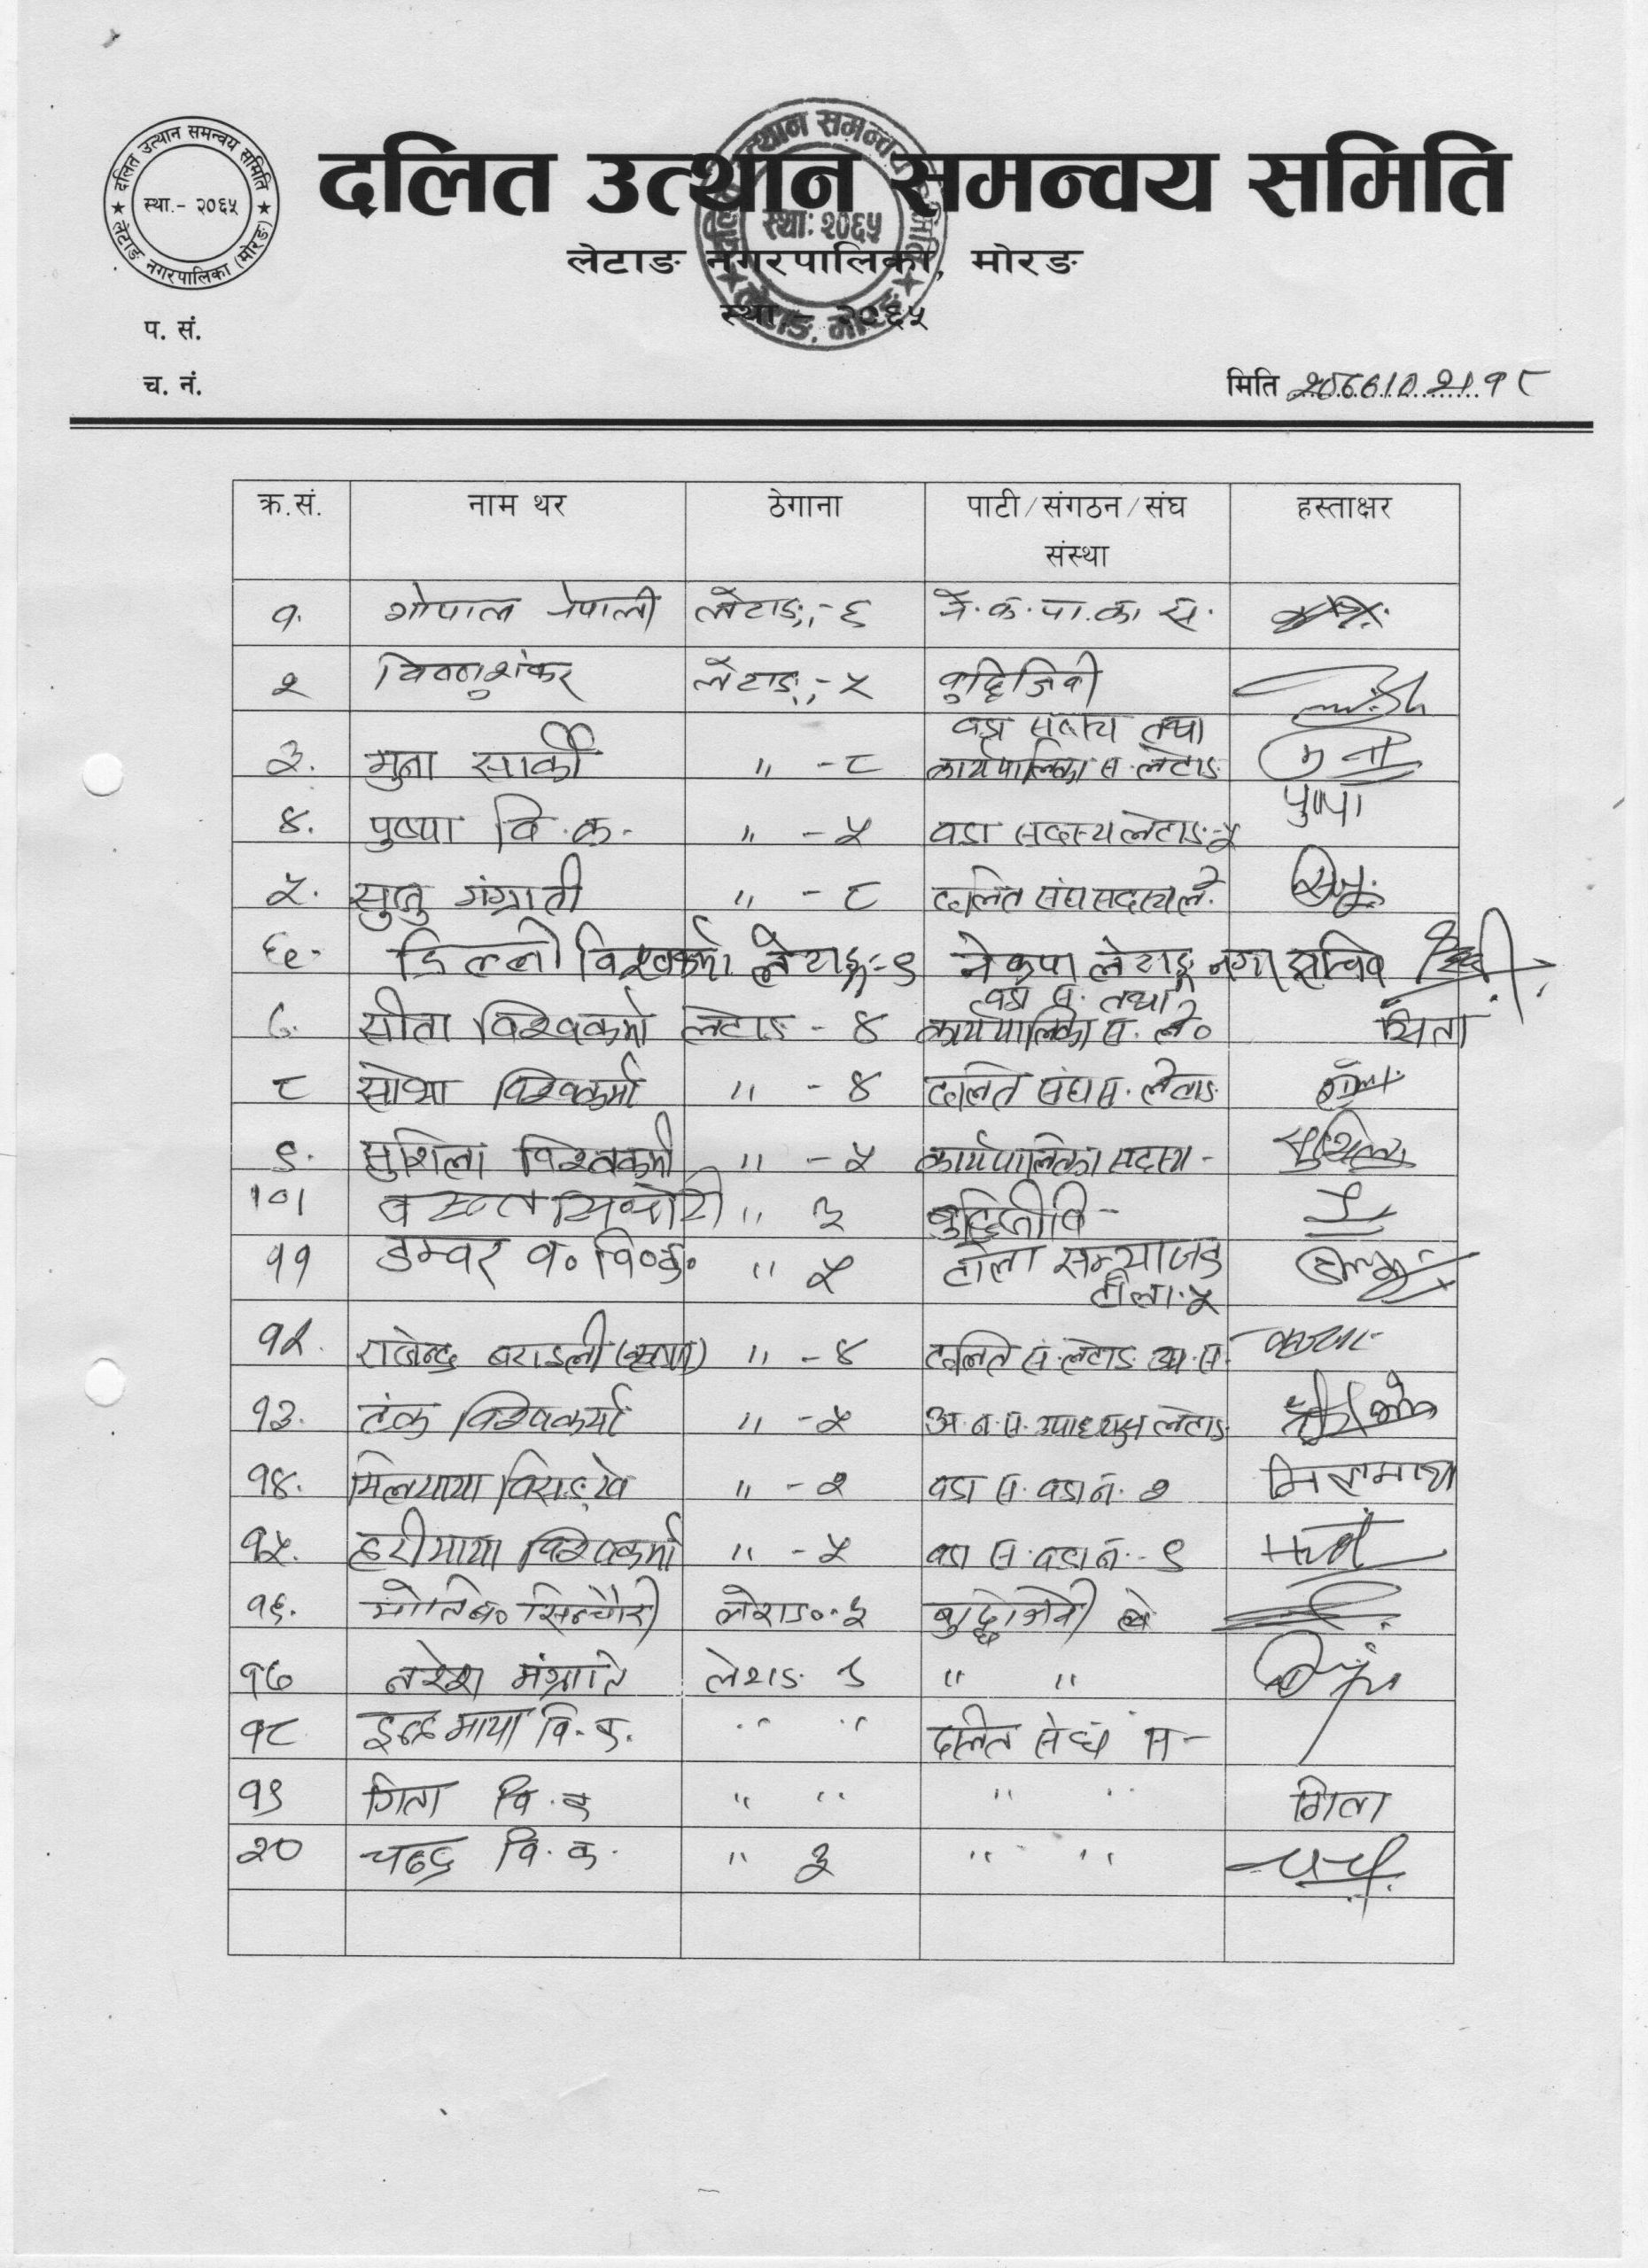 दलित उत्थान समन्वय समिति
स्था.- २०६५
लेटाङ नगरपालिका (मोरङ)
दलित उत्थान समन्वय समिति
लेटाङ नगरपालिका, मोरङ
स्था - २०६५
स्था: २०६५
प. सं.
च. नं.
मिति
क्र.सं. नाम थर ठेगाना पाटी/संगठन/संघ संस्था हस्ताक्षर
१. गोपाल नेपाली लेटाङ,-६ ने.क.पा.का स.
२ विष्णुशंकर लेटाङ,-५ बुद्धिजिवी
३. मुना सार्की " -८ वडा सदस्य तथा कार्यपालिका स. लेटाङ मुना
४. पुष्पा वि.क. " -५ वडा सदस्य लेटाङ-५ पुष्पा
५. " -८ दलित संघ सदस्य ले.
६. डिल्ली विश्वकर्मा लेटाङ-९ नेकपा लेटाङ नगर सचिव
७. सीता विश्वकर्मा लेटाङ - ४ वडा स. तथा कार्यपालिका स. ले० सिता
८ सोभा विश्वकर्मा " - ४ दलित संघ स. लेटाङ
९. सुशिला विश्वकर्मा " -५ कार्यपालिका सदस्य - सुशिला
१०। " ३ बुद्धिजीवि -
११ डम्वर व० वि०क० " ५ टोल टोल.५
१२. राजेन्द्र बराइली " -४ दलित सं. लेटाङ
१३. टंक विश्वकर्मा " -५ उपाध्यक्ष लेटाङ
१४. मिलमाया " -२ वडा स. वडा नं. २ मिलमाया
१५. हरीमाया विश्वकर्मा " -५ वडा स. वडा नं.-९
१६. मोति ब० सिन्चौरी लेटाङ०-३ बुद्धिजिवी
१७ नरेश मंग्राती लेटाङ " "
१८ इन्द्रमाया वि.क. " " दलित संघ स-
१९ गिता वि.क " " " " गिता
२० चन्द्र वि.क. " ३ " "